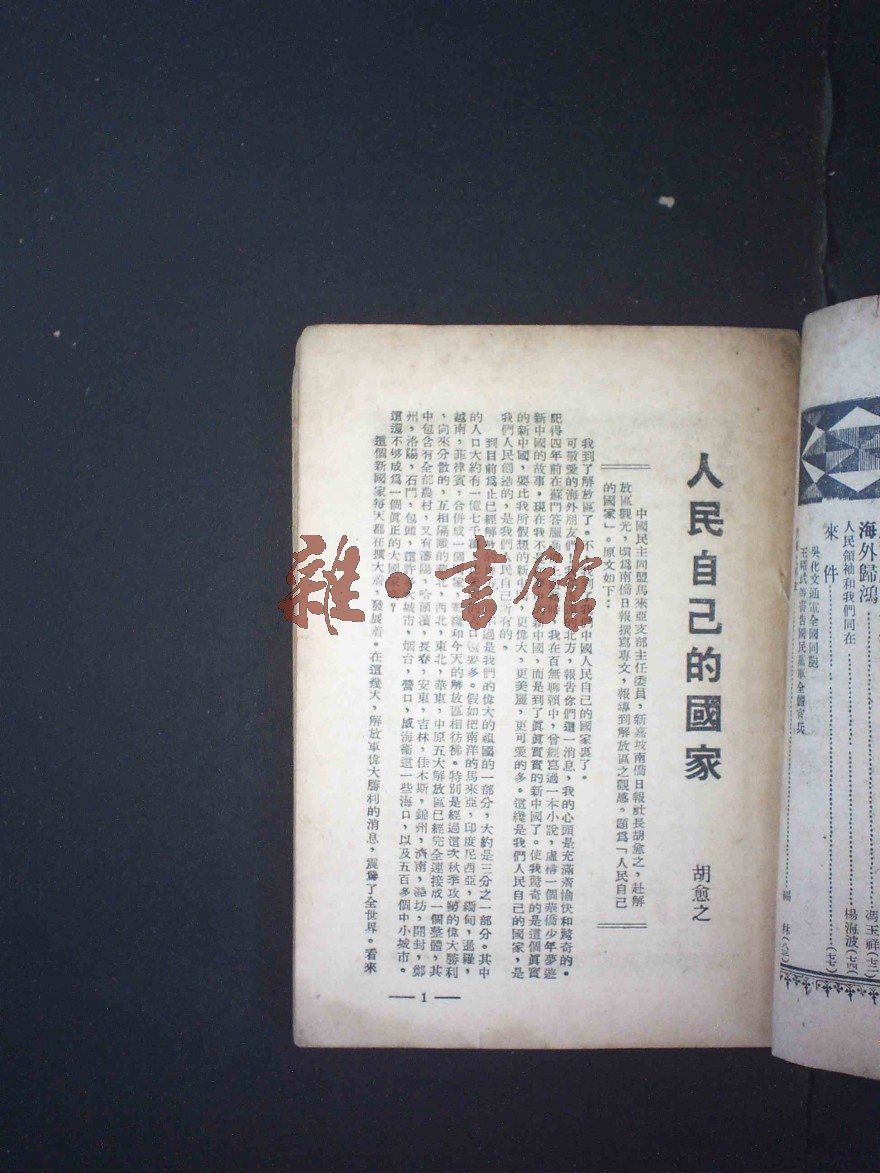 人民自己的國家
胡愈之
中國民主同盟馬來亞支部主任委員,新嘉坡南僑日報社長胡愈之,赴解
放區觀光,頃爲南僑日報撰寫專文,報導到解放區之觀感。題爲「人民自己
的國家」。原文如下:
我到了解放區了。不
中國人民自己的國家裏了。
可敬愛的海外朋友們
北方,報告你們這一消息,我的心頭是充滿着愉快和驚奇的。
記得四年前在蘇門答臘
我在百無聊賴中,曾經寫過一本小說,虛構一個華僑少年夢遊
新中國的故事。現在我不
新中國,而是到了眞眞實實的新中國了。使我驚奇的是這個眞實
的新中國,要比我所假想的新
更偉大,更美麗,更可愛的多。這纔是我們人民自己的國家,是
我們人民創造的,是我們人民自己所有的。
到目前爲止已經解放
不過是我們的偉大的祖國的一部分,大約是三分之一部分。其中
的人口大約有一億七千萬
要多。假如把南洋的馬來亞,印度尼西亞,緬甸,暹羅,
越南,菲律賓,合併成一個
和今天的解放區相彷彿。特別是經過這次秋季攻勢的偉大勝利
,向來分散的,互相隔離的華北,西北,東北,華東,中原五大解放區已經完全連接成一個整體,其
中包含有全部農村,又有瀋陽,哈爾濱,長春,安東,吉林,佳木斯,錦州,濟南,濰坊,開封,鄭
州,洛陽,石門,包頭,這許
大城市,烟台,營口,威海衞這一些海口,以及五百多個中小城市。
這還不够成爲一個眞正的大國家
?
這個新國家每天都在擴大着,發展着。在這幾天,解放軍偉大勝利的消息,震驚了全世界。看來
— 1 —
雜·書館
海外歸鴻
馮玉祥(三)
人民領袖和我們同在
楊海波(古)
來件
(七)
吳化文通電全國同胞
王耀武等審告國民黨軍全體官兵
編
林(八)